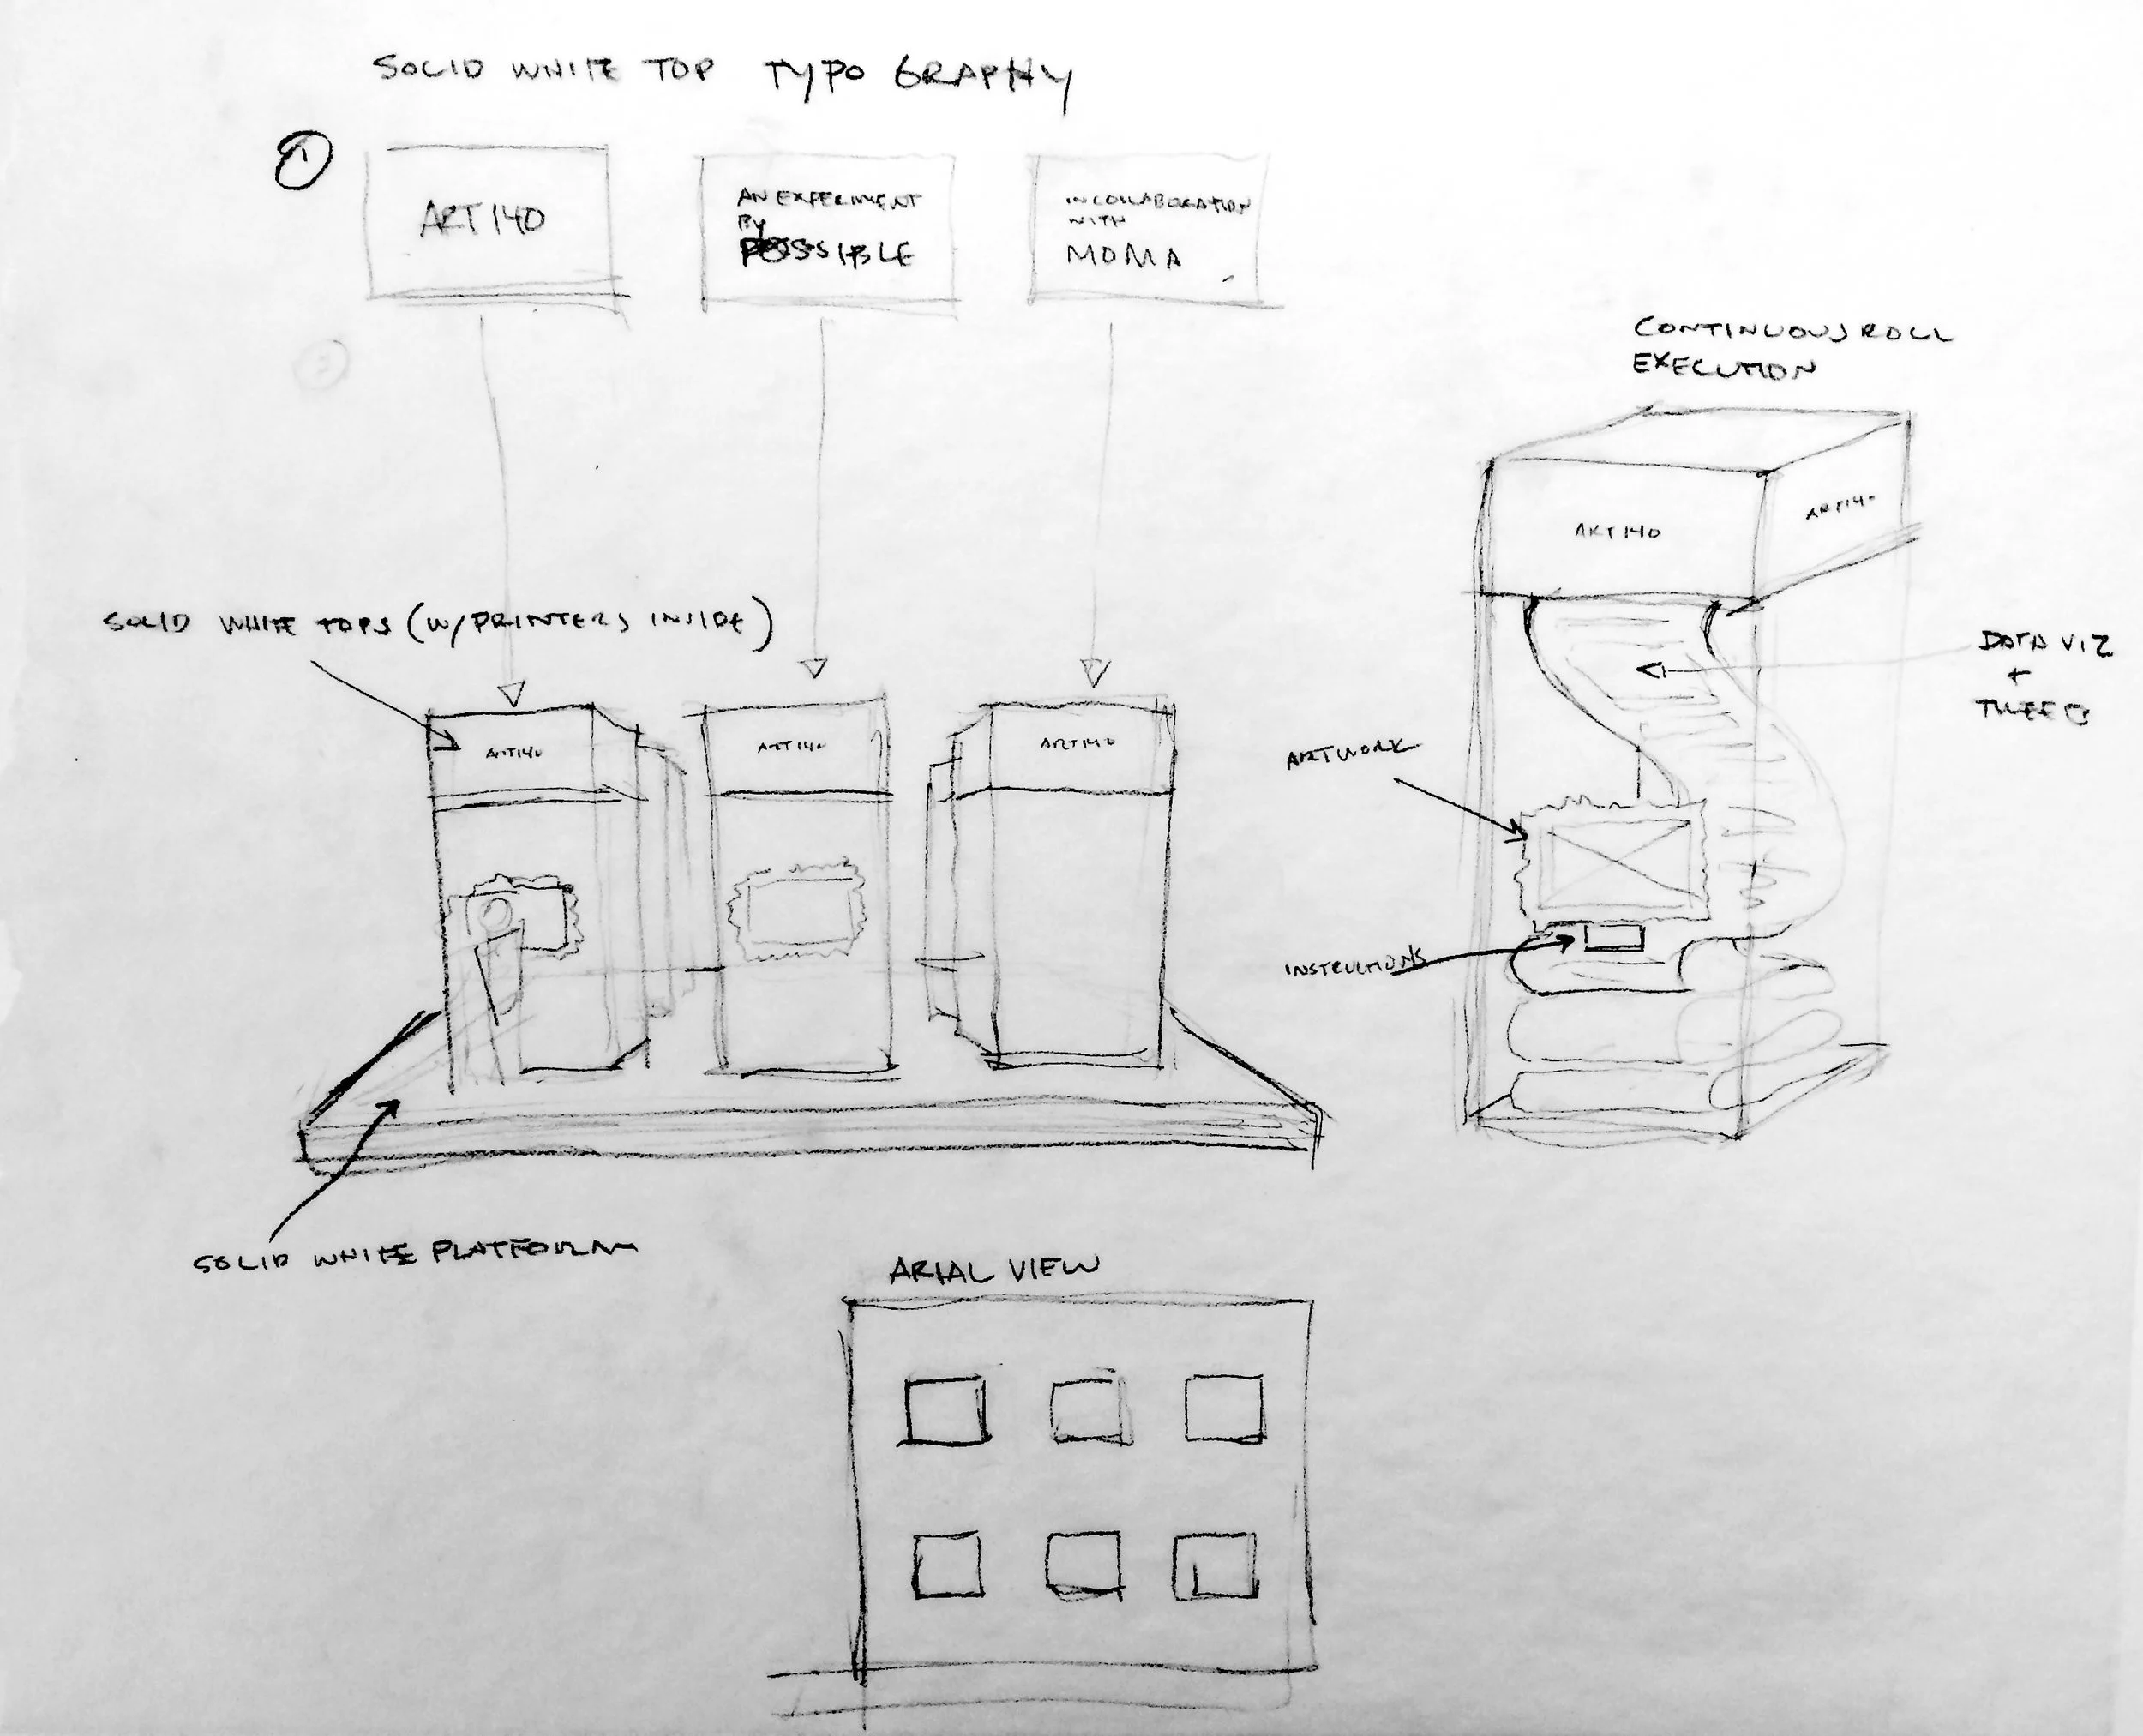 SOLID WHITE TOP TYPOGRAPHY
1
ART140
AN EXPERIMENT
BY
POSSIBLE
IN COLLABORATION
WITH
MOMA
2
CONTINUOUS ROLL
EXECUTION
ART140
ART140
SOLID WHITE TOPS (W/PRINTERS INSIDE)
DATA VIZ
+
TWEETS
ART140
ART140
ART140
ARTWORK
INSTRUCTIONS
SOLID WHITE PLATFORM
ARIAL VIEW